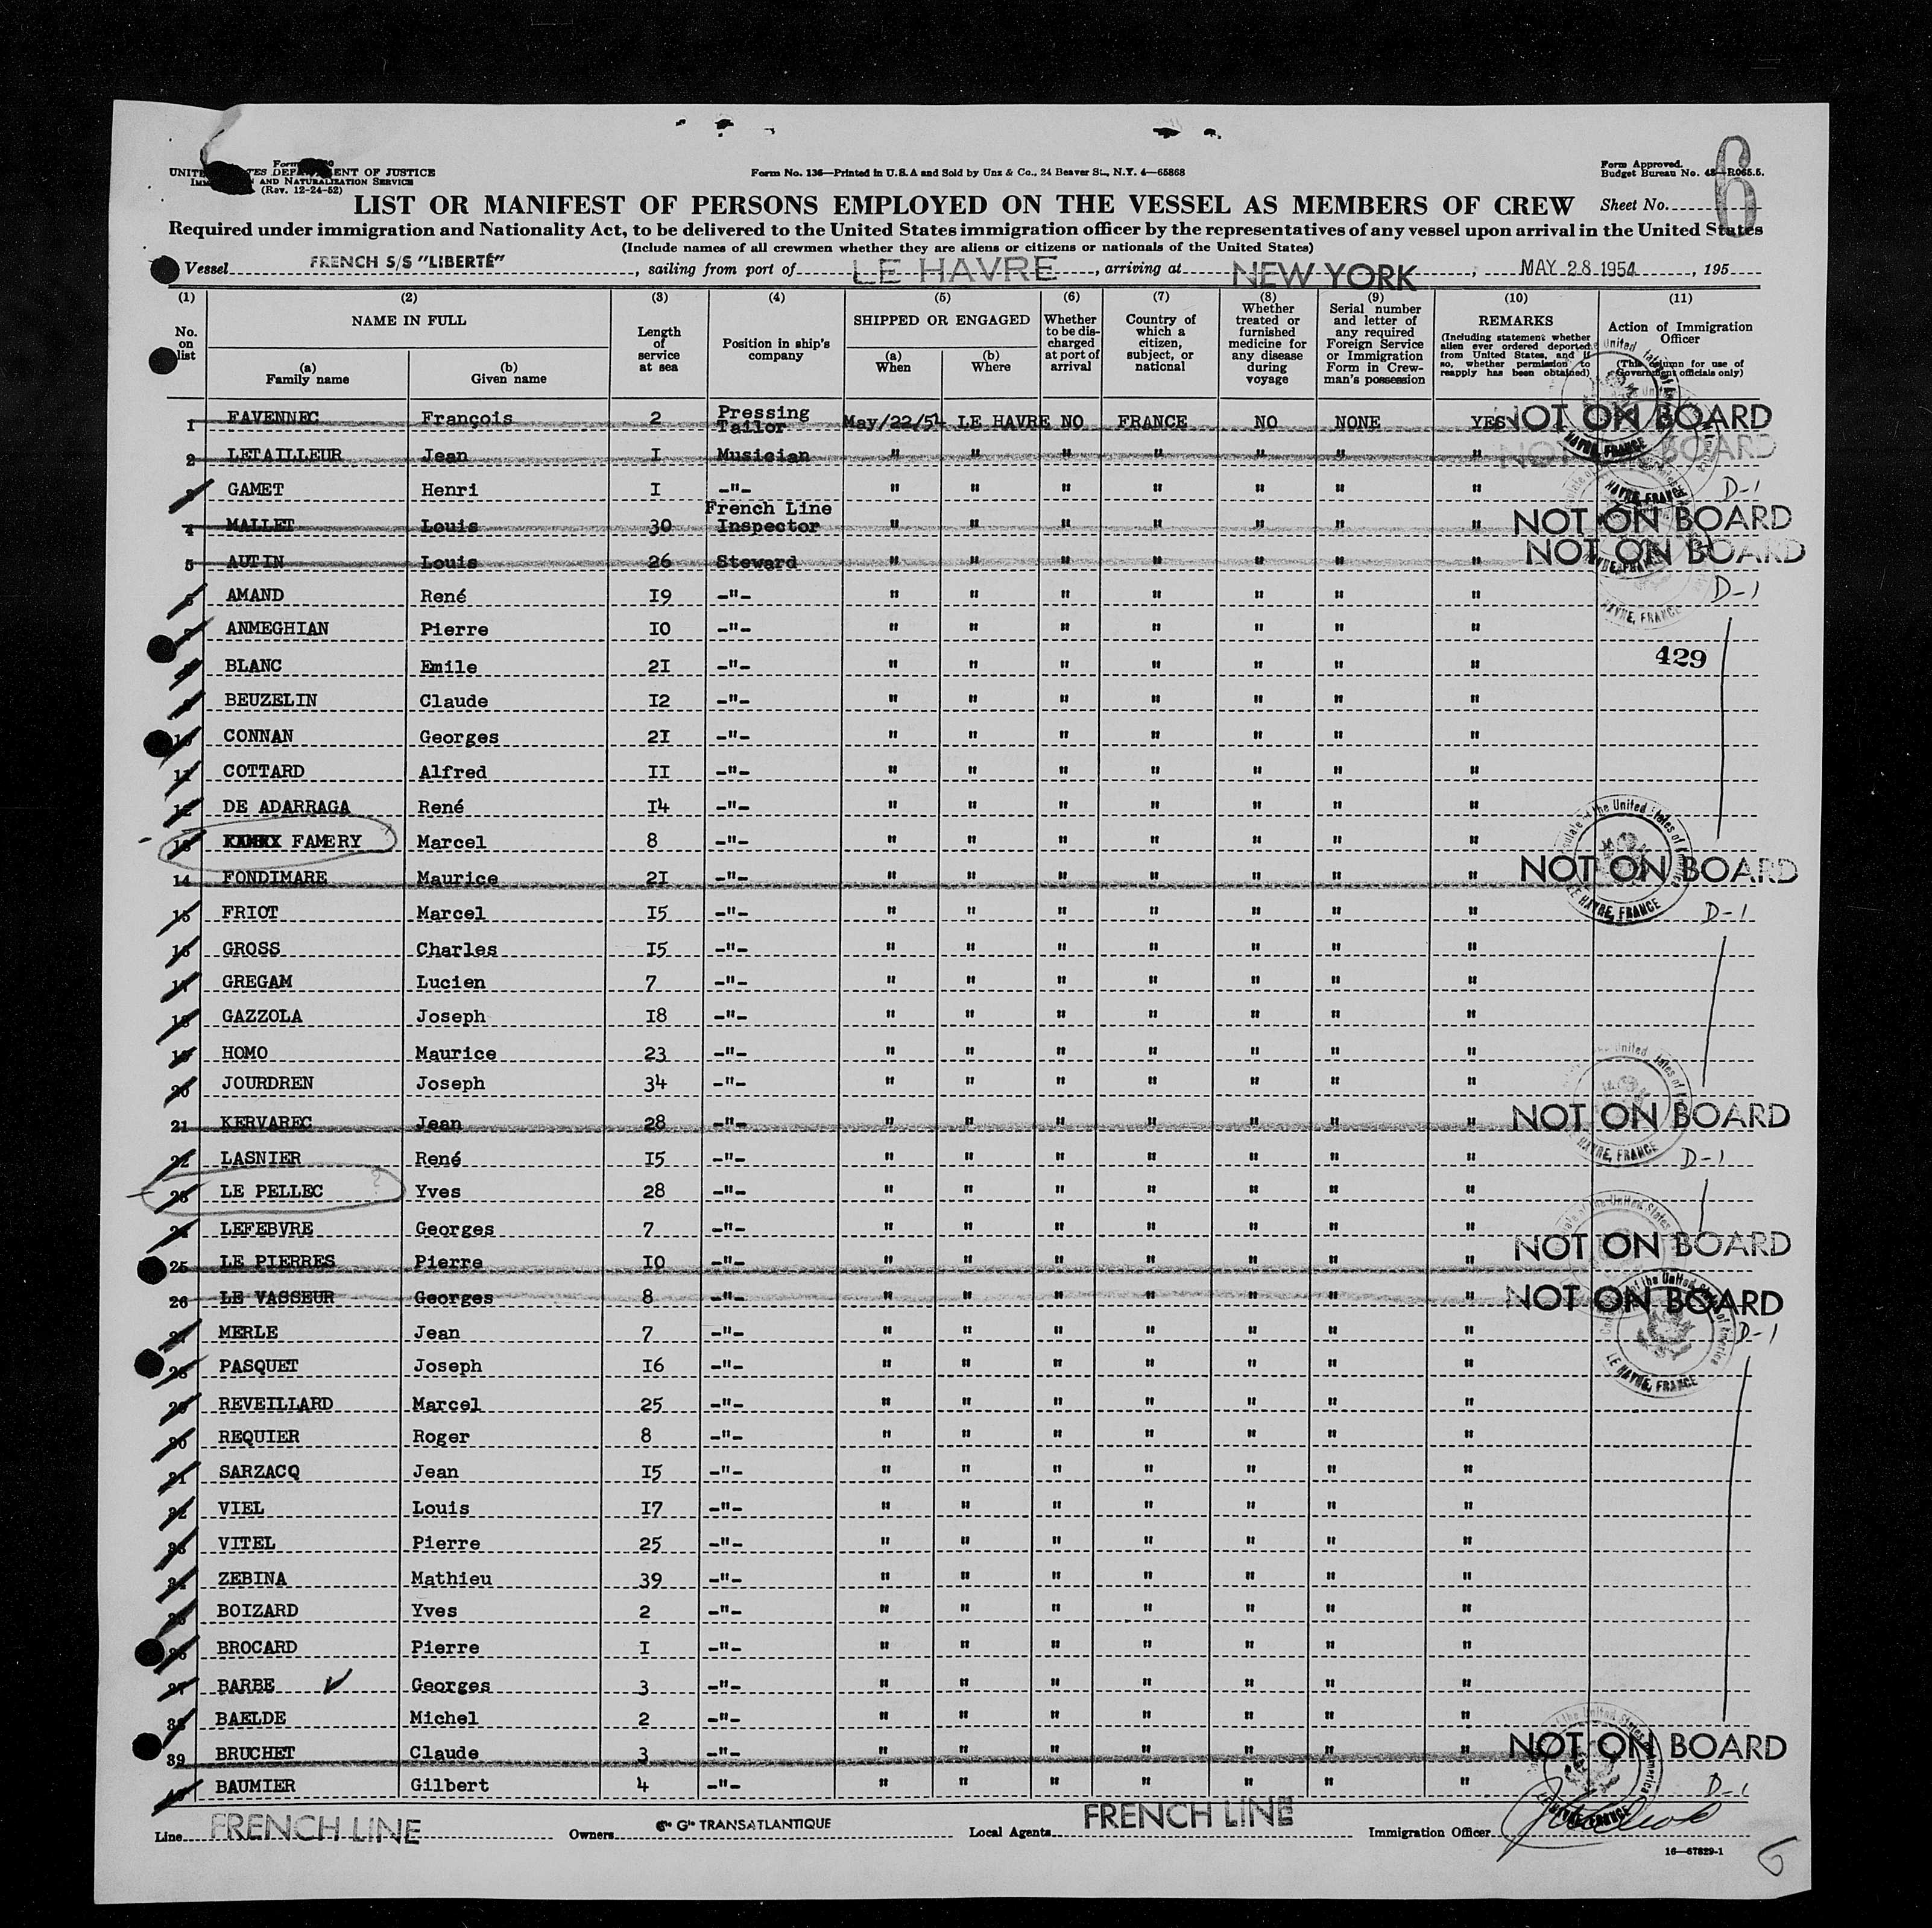 Form
UNITED STATES DEPARTMENT OF JUSTICE
AND NATURALIZATION SERVICE
(Rev. 12-24-52)
Form No. 136—Printed in U.S.A and Sold by Unz & Co., 24 Beaver St., N.Y. 4—65868
Form Approved.
Budget Bureau No. 43—R065.5.
6
LIST OR MANIFEST OF PERSONS EMPLOYED ON THE VESSEL AS MEMBERS OF CREW
Sheet No.
Required under immigration and Nationality Act, to be delivered to the United States immigration officer by the representatives of any vessel upon arrival in the United States
(Include names of all crewmen whether they are aliens or citizens or nationals of the United States)
Vessel FRENCH S/S "LIBERTÉ", sailing from port of LE HAVRE, arriving at NEW YORK, MAY 28 1954, 195
(1) No. on list
(2) NAME IN FULL (a) Family name (b) Given name
(3) Length of service at sea
(4) Position in ship's company
(5) SHIPPED OR ENGAGED (a) When (b) Where
(6) Whether to be discharged at port of arrival
(7) Country of which a citizen, subject, or national
(8) Whether treated or furnished medicine for any disease during voyage
(9) Serial number and letter of any required Foreign Service or Immigration Form in Crewman's possession
(10) REMARKS (Including statement whether alien ever ordered deported from United States, and if so, whether permission to reapply has been obtained)
(11) Action of Immigration Officer (This column for use of Government officials only)
1 FAVENNEC François 2 Pressing Tailor May/22/54 LE HAVRE NO FRANCE NO NONE YES NOT ON BOARD
2 LETAILLEUR Jean I Musician " " " " " " " NOT ON BOARD
3 GAMET Henri I -"- " " " " " " " D-1
4 MALLET Louis 30 French Line Inspector " " " " " " " NOT ON BOARD
5 AUTIN Louis 26 Steward " " " " " " " NOT ON BOARD
6 AMAND René I9 -"- " " " " " " " D-1
7 ANMEGHIAN Pierre I0 -"- " " " " " " "
8 BLANC Emile 2I -"- " " " " " " " 429
9 BEUZELIN Claude I2 -"- " " " " " " "
10 CONNAN Georges 2I -"- " " " " " " "
11 COTTARD Alfred II -"- " " " " " " "
12 DE ADARRAGA René I4 -"- " " " " " " "
13 FAMERY Marcel 8 -"- " " " " " " "
14 FONDIMARE Maurice 2I -"- " " " " " " " NOT ON BOARD
15 FRIOT Marcel I5 -"- " " " " " " " D-1
16 GROSS Charles I5 -"- " " " " " " "
17 GREGAM Lucien 7 -"- " " " " " " "
18 GAZZOLA Joseph I8 -"- " " " " " " "
19 HOMO Maurice 23 -"- " " " " " " "
20 JOURDREN Joseph 34 -"- " " " " " " "
21 KERVAREC Jean 28 -"- " " " " " " " NOT ON BOARD
22 LASNIER René I5 -"- " " " " " " " D-1
23 LE PELLEC ? Yves 28 -"- " " " " " " "
24 LEFEBVRE Georges 7 -"- " " " " " " "
25 LE PIERRES Pierre I0 -"- " " " " " " " NOT ON BOARD
26 LE VASSEUR Georges 8 -"- " " " " " " " NOT ON BOARD
27 MERLE Jean 7 -"- " " " " " " " D-1
28 PASQUET Joseph I6 -"- " " " " " " "
29 REVEILLARD Marcel 25 -"- " " " " " " "
30 REQUIER Roger 8 -"- " " " " " " "
31 SARZACQ Jean I5 -"- " " " " " " "
32 VIEL Louis I7 -"- " " " " " " "
33 VITEL Pierre 25 -"- " " " " " " "
34 ZEBINA Mathieu 39 -"- " " " " " " "
35 BOIZARD Yves 2 -"- " " " " " " "
36 BROCARD Pierre I -"- " " " " " " "
37 BARBE Georges 3 -"- " " " " " " "
38 BAELDE Michel 2 -"- " " " " " " "
39 BRUCHET Claude 3 -"- " " " " " " " NOT ON BOARD
40 BAUMIER Gilbert 4 -"- " " " " " " " D-1
Line FRENCH LINE Owners Cie Gle TRANSATLANTIQUE Local Agents FRENCH LINE Immigration Officer
16—67829-1
6